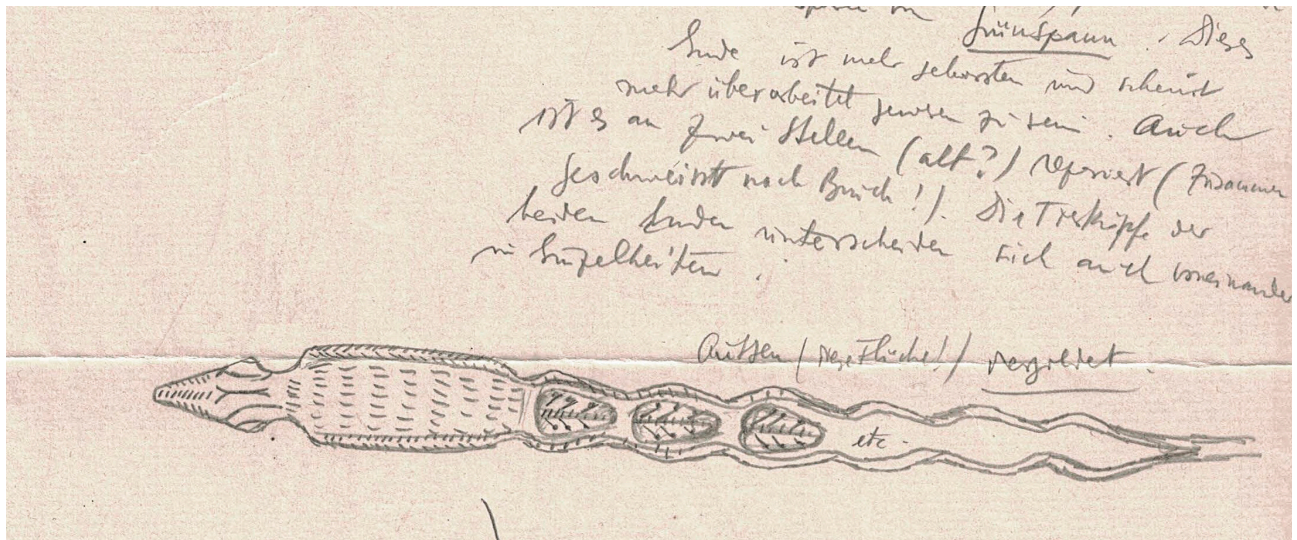 Grünspann. Dieses
Ende ist mehr geborsten und scheint
mehr überarbeitet gewesen zu sein. Auch
ist es an zwei Stellen (alt?) repariert (zusammen
geschweisst nach Bruch!). Die Tierköpfe der
beiden Enden unterscheiden sich auch voneinander
in Einzelheiten.
Aussen ( !) vergoldet.
etc.